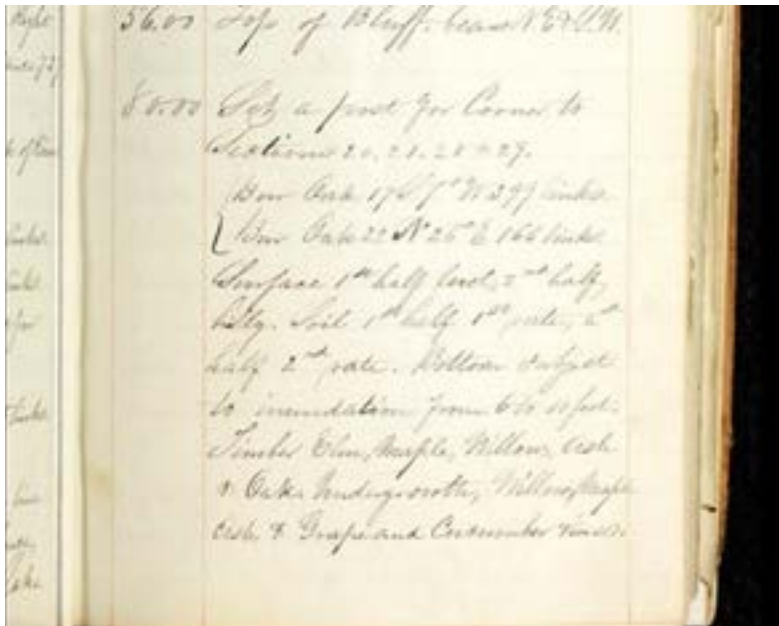 56.00 Top of Bluff. bears N.E & S.W.
80.00 Set a post for Corner to
Sections 20, 21, 28 & 29.
Bur Oak 17 S 7° W 399 links
Bur Oak 22 N 26° E 166 links
Surface 1st half level, 2nd half,
hilly. Soil 1st half 1st rate, 2d
half 2nd rate. Bottom subject
to inundation from 6 to 10 feet.
Timber Elm, Maple, Willow, Ash
& Oak. Undergrowth, Willow, Maple
Ash & Grape and Cucumber vines.